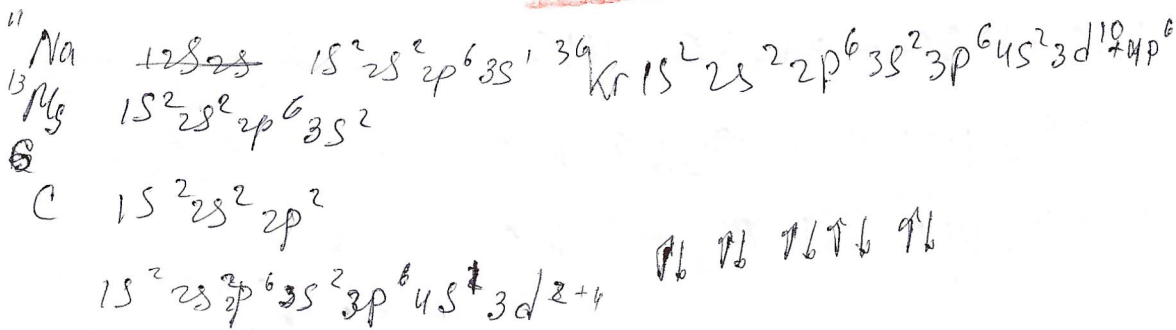 11 Na 1s² 2s² 2p⁶ 3s¹ 36 Kr 1s² 2s² 2p⁶ 3s² 3p⁶ 4s² 3d¹⁰ 4p⁶
13 Mg 1s² 2s² 2p⁶ 3s²
6
C 1s² 2s² 2p²
↑↓ ↑↓ ↑↓ ↑↓ ↑↓
1s² 2s² 2p⁶ 3s² 3p⁶ 4s 3d